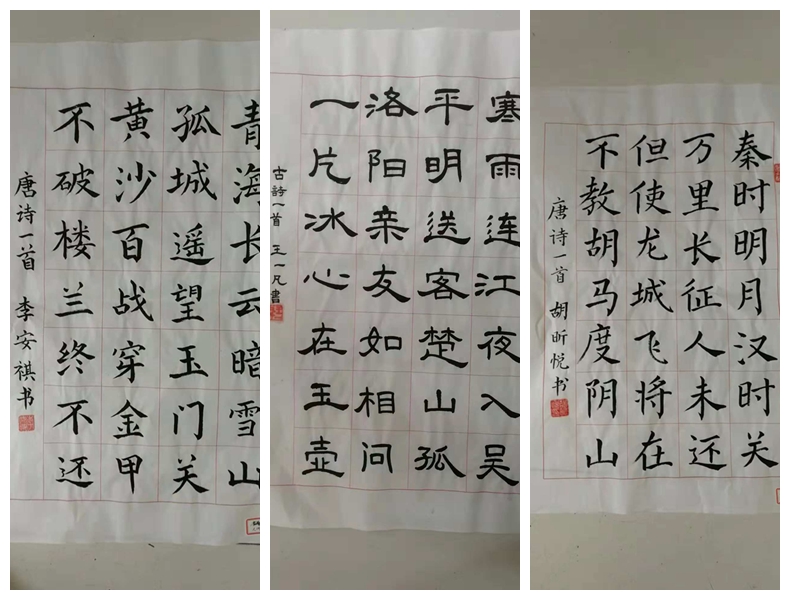 青海长云暗雪山
孤城遥望玉门关
黄沙百战穿金甲
不破楼兰终不还
唐诗一首 李安祺书
寒雨连江夜入吴
平明送客楚山孤
洛阳亲友如相问
一片冰心在玉壶
古詩一首 王一凡書
秦时明月汉时关
万里长征人未还
但使龙城飞将在
不教胡马度阴山
唐诗一首 胡昕悦书